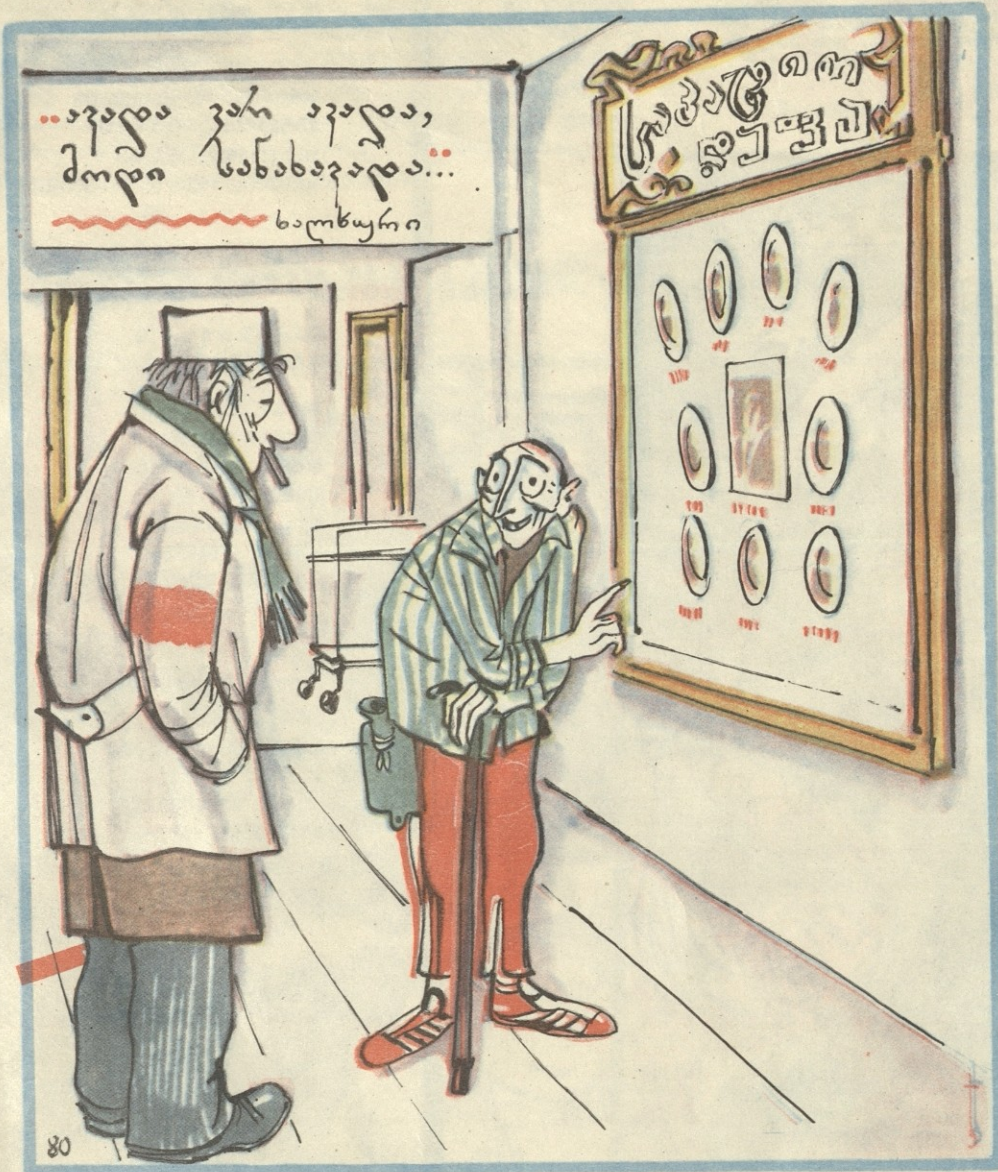 „ავადა ვარ ავადა,
მოდი სანახავადა“...
ხალხური
საპატიო
დაფა
80